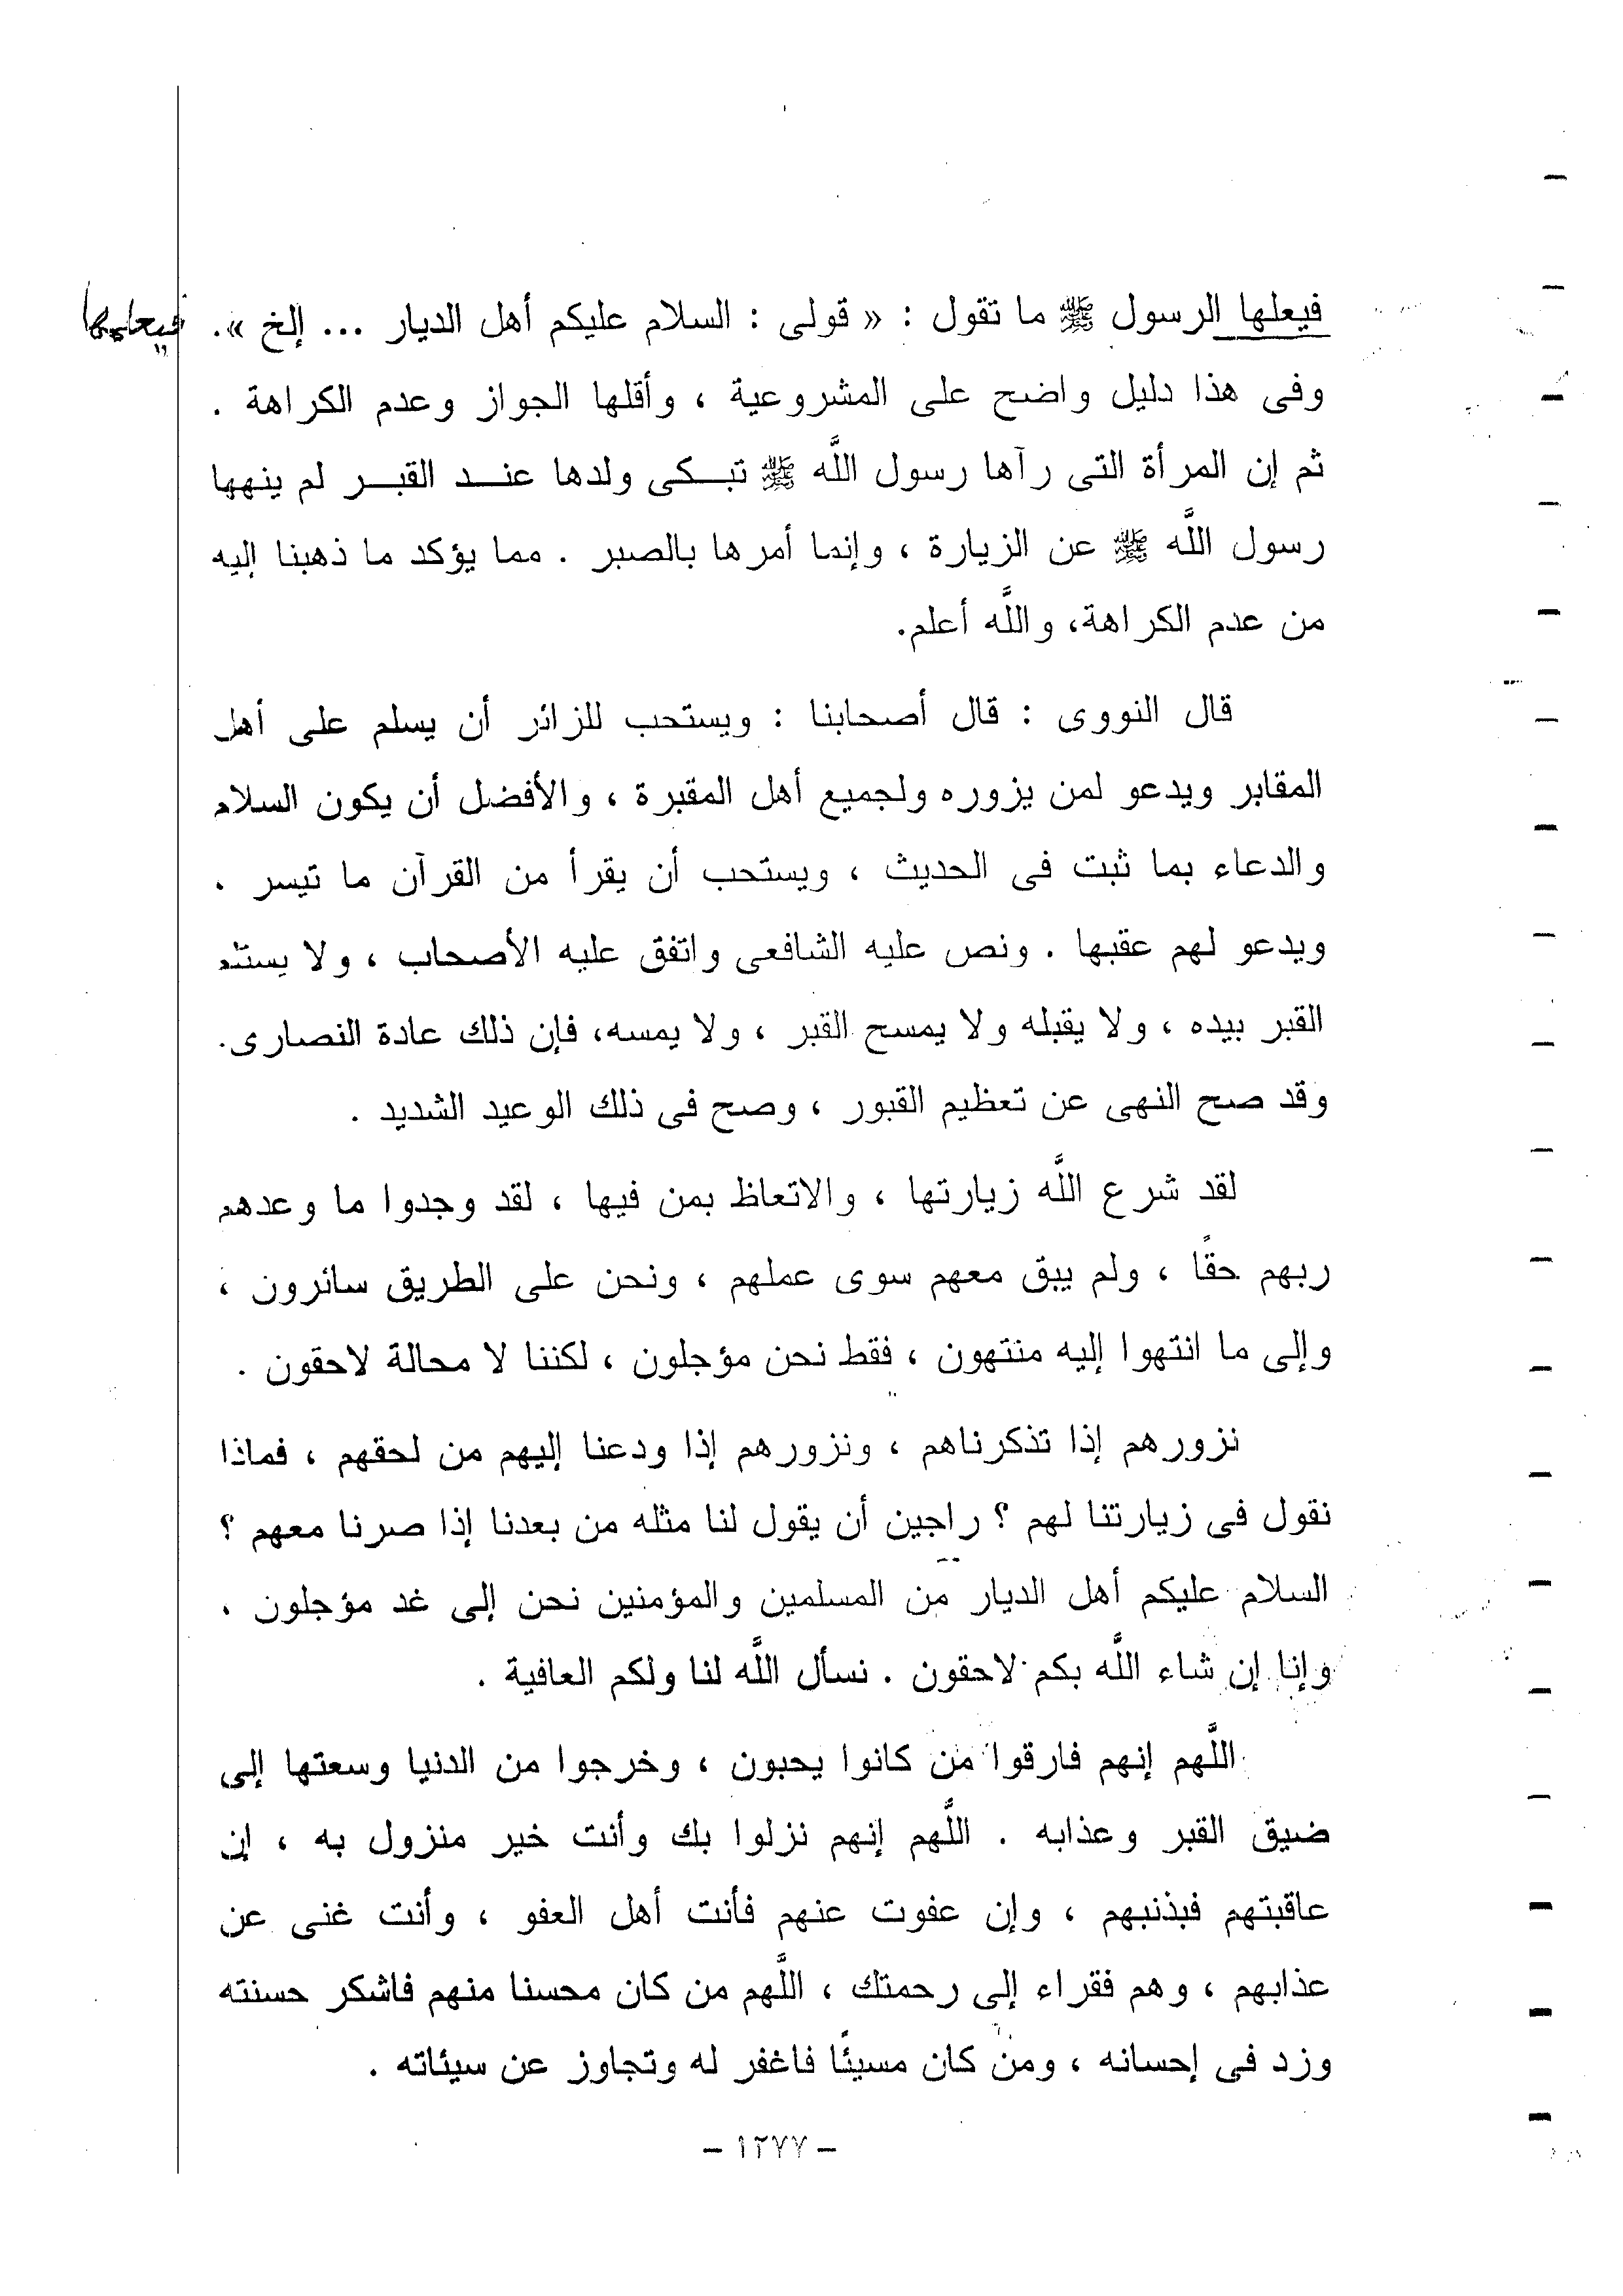 فيعلها الرسول ﷺ ما تقول : « قولى : السلام عليكم أهل الديار ... إلخ ».
وفى هذا دليل واضح على المشروعية ، وأقلها الجواز وعدم الكراهة .
ثم إن المرأة التى رآها رسول اللَّه ﷺ تبـكى ولدها عنـد القبـر لم ينهها
رسول اللَّه ﷺ عن الزيارة ، وإنما أمرها بالصبر . مما يؤكد ما ذهبنا إليه
من عدم الكراهة، واللَّه أعلم.
قال النووى : قال أصحابنا : ويستحب للزائر أن يسلم على أهل
المقابر ويدعو لمن يزوره ولجميع أهل المقبرة ، والأفضل أن يكون السلام
والدعاء بما ثبت فى الحديث ، ويستحب أن يقرأ من القرآن ما تيسر .
ويدعو لهم عقبها . ونص عليه الشافعى واتفق عليه الأصحاب ، ولا
القبر بيده ، ولا يقبله ولا يمسح القبر ، ولا يمسه، فإن ذلك عادة النصارى.
وقد صح النهى عن تعظيم القبور ، وصح فى ذلك الوعيد الشديد .
لقد شرع اللَّه زيارتها ، والاتعاظ بمن فيها ، لقد وجدوا ما وعدهم
ربهم حقًا ، ولم يبق معهم سوى عملهم ، ونحن على الطريق سائرون ،
وإلى ما انتهوا إليه منتهون ، فقط نحن مؤجلون ، لكننا لا محالة لاحقون .
نزورهم إذا تذكرناهم ، ونزورهم إذا ودعنا إليهم من لحقهم ، فماذا
نقول فى زيارتنا لهم ؟ راجين أن يقول لنا مثله من بعدنا إذا صرنا معهم ؟
السلام عليكم أهل الديار من المسلمين والمؤمنين نحن إلى غد مؤجلون .
وإنا إن شاء اللَّه بكم لاحقون . نسأل اللَّه لنا ولكم العافية .
اللَّهم إنهم فارقوا من كانوا يحبون ، وخرجوا من الدنيا وسعتها إلى
ضيق القبر وعذابه . اللَّهم إنهم نزلوا بك وأنت خير منزول به ، إن
عاقبتهم فبذنبهم ، وإن عفوت عنهم فأنت أهل العفو ، وأنت غنى عن
عذابهم ، وهم فقراء إلى رحمتك ، اللَّهم من كان محسنا منهم فاشكر حسنته
وزد فى إحسانه ، ومن كان مسيئًا فاغفر له وتجاوز عن سيئاته .
- ١٢٧٧ -